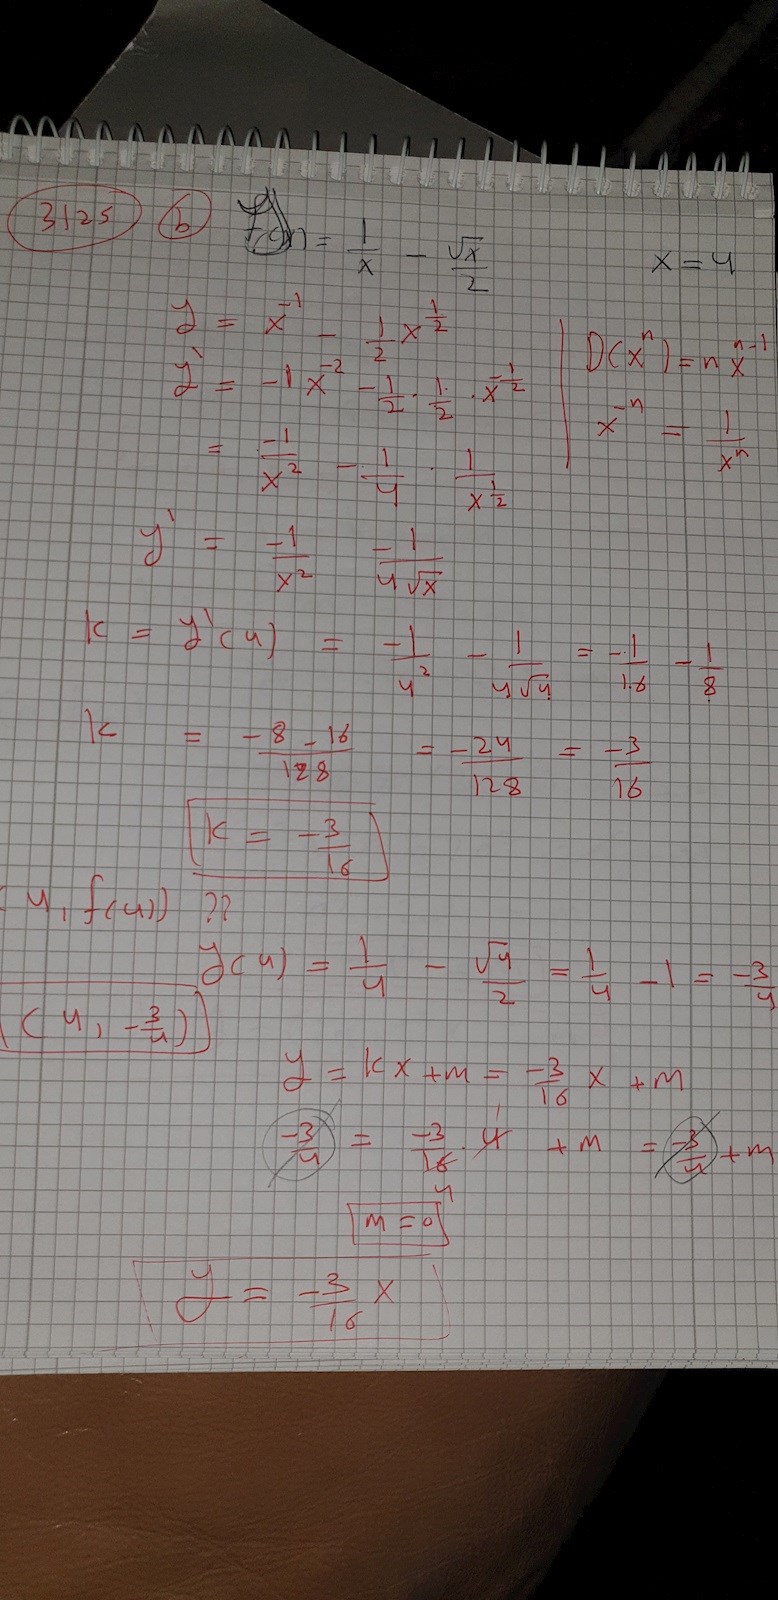 3125 b f(x) = 1/x - √x/2 x = 4
y = x^-1 - 1/2 x^1/2
D(x^n) = n x^n-1
y' = -1 x^-2 - 1/2 · 1/2 · x^-1/2
x^-n = 1/x^n
= -1/x^2 - 1/4 · 1/x^1/2
y' = -1/x^2 - 1/4√x
k = y'(4) = -1/4^2 - 1/4√4 = -1/16 - 1/8
k = -8-16/128 = -24/128 = -3/16
k = -3/16
(4, f(4)) ??
y(4) = 1/4 - √4/2 = 1/4 - 1 = -3/4
(4, -3/4)
y = kx + m = -3/16 x + m
-3/4 = -3/16 · 4 + m = -3/4 + m
1
4
m = 0
y = -3/16 x